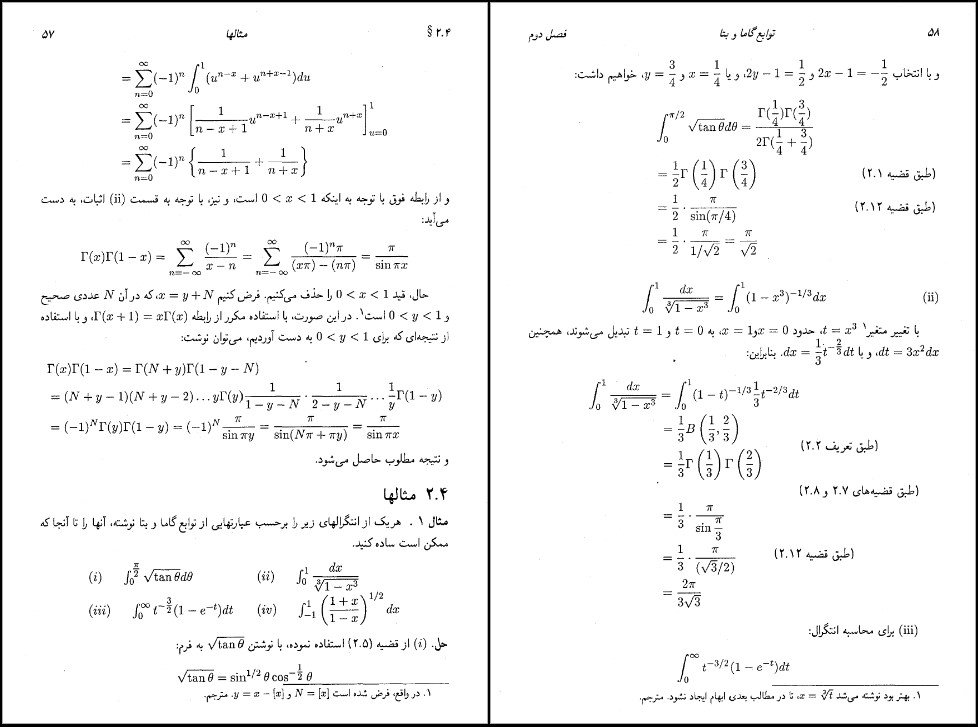 § ۲.۴ مثالها ۵۷
= \sum_{n=0}^{\infty} (-1)^n \int_0^1 (u^{n-x} + u^{n+x-1}) du
= \sum_{n=0}^{\infty} (-1)^n \left[ \frac{1}{n-x+1} u^{n-x+1} + \frac{1}{n+x} u^{n+x} \right]_{u=0}^{1}
= \sum_{n=0}^{\infty} (-1)^n \left\{ \frac{1}{n-x+1} + \frac{1}{n+x} \right\}
و از رابطه فوق با توجه به اینکه 0 < x < 1 است، و نیز، با توجه به قسمت (ii) اثبات، به دست
می‌آید:
Γ(x)Γ(1 − x) = \sum_{n=-\infty}^{\infty} \frac{(-1)^n}{x-n} = \sum_{n=-\infty}^{\infty} \frac{(-1)^n π}{(xπ)-(nπ)} = \frac{π}{\sin πx}
حال، قید 0 < x < 1 را حذف می‌کنیم. فرض کنیم x = y + N، که در آن N عددی صحیح
و 0 < y < 1 است۱. در این صورت، با استفاده مکرر از رابطه Γ(x + 1) = xΓ(x)، و با استفاده
از نتیجه‌ای که برای 0 < y < 1 به دست آوردیم، می‌توان نوشت:
Γ(x)Γ(1 − x) = Γ(N + y)Γ(1 − y − N)
= (N + y − 1)(N + y − 2) ... yΓ(y) \frac{1}{1-y-N} · \frac{1}{2-y-N} ... \frac{1}{y} Γ(1 − y)
= (−1)^N Γ(y)Γ(1 − y) = (−1)^N \frac{π}{\sin πy} = \frac{π}{\sin(Nπ + πy)} = \frac{π}{\sin πx}
و نتیجه مطلوب حاصل می‌شود.
۲.۴ مثالها
مثال ۱ . هر یک از انتگرالهای زیر را برحسب عبارتهایی از توابع گاما و بتا نوشته، آنها را تا آنجا که
ممکن است ساده کنید.
(i) \int_0^{\frac{π}{2}} \sqrt{\tan θ} dθ (ii) \int_0^1 \frac{dx}{\sqrt[3]{1-x^3}}
(iii) \int_0^{\infty} t^{-\frac{3}{2}} (1 − e^{-t}) dt (iv) \int_{-1}^{1} \left( \frac{1+x}{1-x} \right)^{1/2} dx
حل. (i) از قضیه (۲.۵) استفاده نموده، با نوشتن \sqrt{\tan θ} به فرم:
\sqrt{\tan θ} = \sin^{1/2} θ \cos^{-\frac{1}{2}} θ
۱. در واقع، فرض شده است N = [x] و y = x − [x]. مترجم.
فصل دوم توابع گاما و بتا ۵۸
و با انتخاب 2x − 1 = −\frac{1}{2} و 2y − 1 = \frac{1}{2}، و یا x = \frac{1}{4} و y = \frac{3}{4}، خواهیم داشت:
\int_0^{π/2} \sqrt{\tan θ} dθ = \frac{Γ(\frac{1}{4})Γ(\frac{3}{4})}{2Γ(\frac{1}{4} + \frac{3}{4})}
= \frac{1}{2} Γ\left(\frac{1}{4}\right) Γ\left(\frac{3}{4}\right) (طبق قضیه ۲.۱)
= \frac{1}{2} · \frac{π}{\sin(π/4)} (طبق قضیه ۲.۱۲)
= \frac{1}{2} · \frac{π}{1/\sqrt{2}} = \frac{π}{\sqrt{2}}
\int_0^1 \frac{dx}{\sqrt[3]{1-x^3}} = \int_0^1 (1 − x^3)^{-1/3} dx (ii)
با تغییر متغیر۱ t = x^3، حدود x = 0 و x = 1، به t = 0 و t = 1 تبدیل می‌شوند، همچنین
dt = 3x^2 dx، و یا dx = \frac{1}{3} t^{-\frac{2}{3}} dt. بنابراین:
\int_0^1 \frac{dx}{\sqrt[3]{1-x^3}} = \int_0^1 (1 − t)^{-1/3} \frac{1}{3} t^{-2/3} dt
= \frac{1}{3} B\left(\frac{1}{3}, \frac{2}{3}\right)
(طبق تعریف ۲.۲)
= \frac{1}{3} Γ\left(\frac{1}{3}\right) Γ\left(\frac{2}{3}\right)
(طبق قضیه‌های ۲.۷ و ۲.۸)
= \frac{1}{3} · \frac{π}{\sin \frac{π}{3}}
= \frac{1}{3} · \frac{π}{(\sqrt{3}/2)} (طبق قضیه ۲.۱۲)
= \frac{2π}{3\sqrt{3}}
(iii) برای محاسبه انتگرال:
\int_0^{\infty} t^{-3/2} (1 − e^{-t}) dt
۱. بهتر بود نوشته می‌شد x = \sqrt[3]{t}، تا در مطالب بعدی ابهام ایجاد نشود. مترجم.